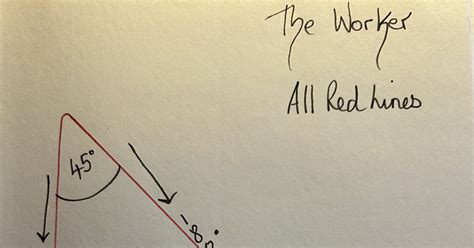 The Worker
All Red Lines
45°